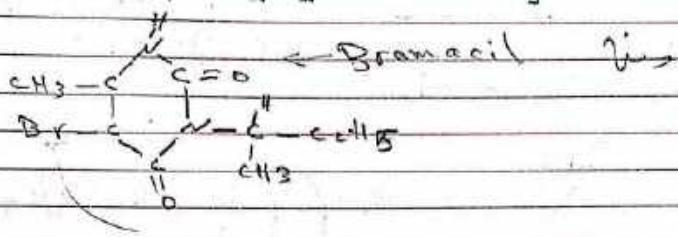 H
N
CH3 - C C = O ← Bromacil
H
Br - C N - C - C2H5
C CH3
O